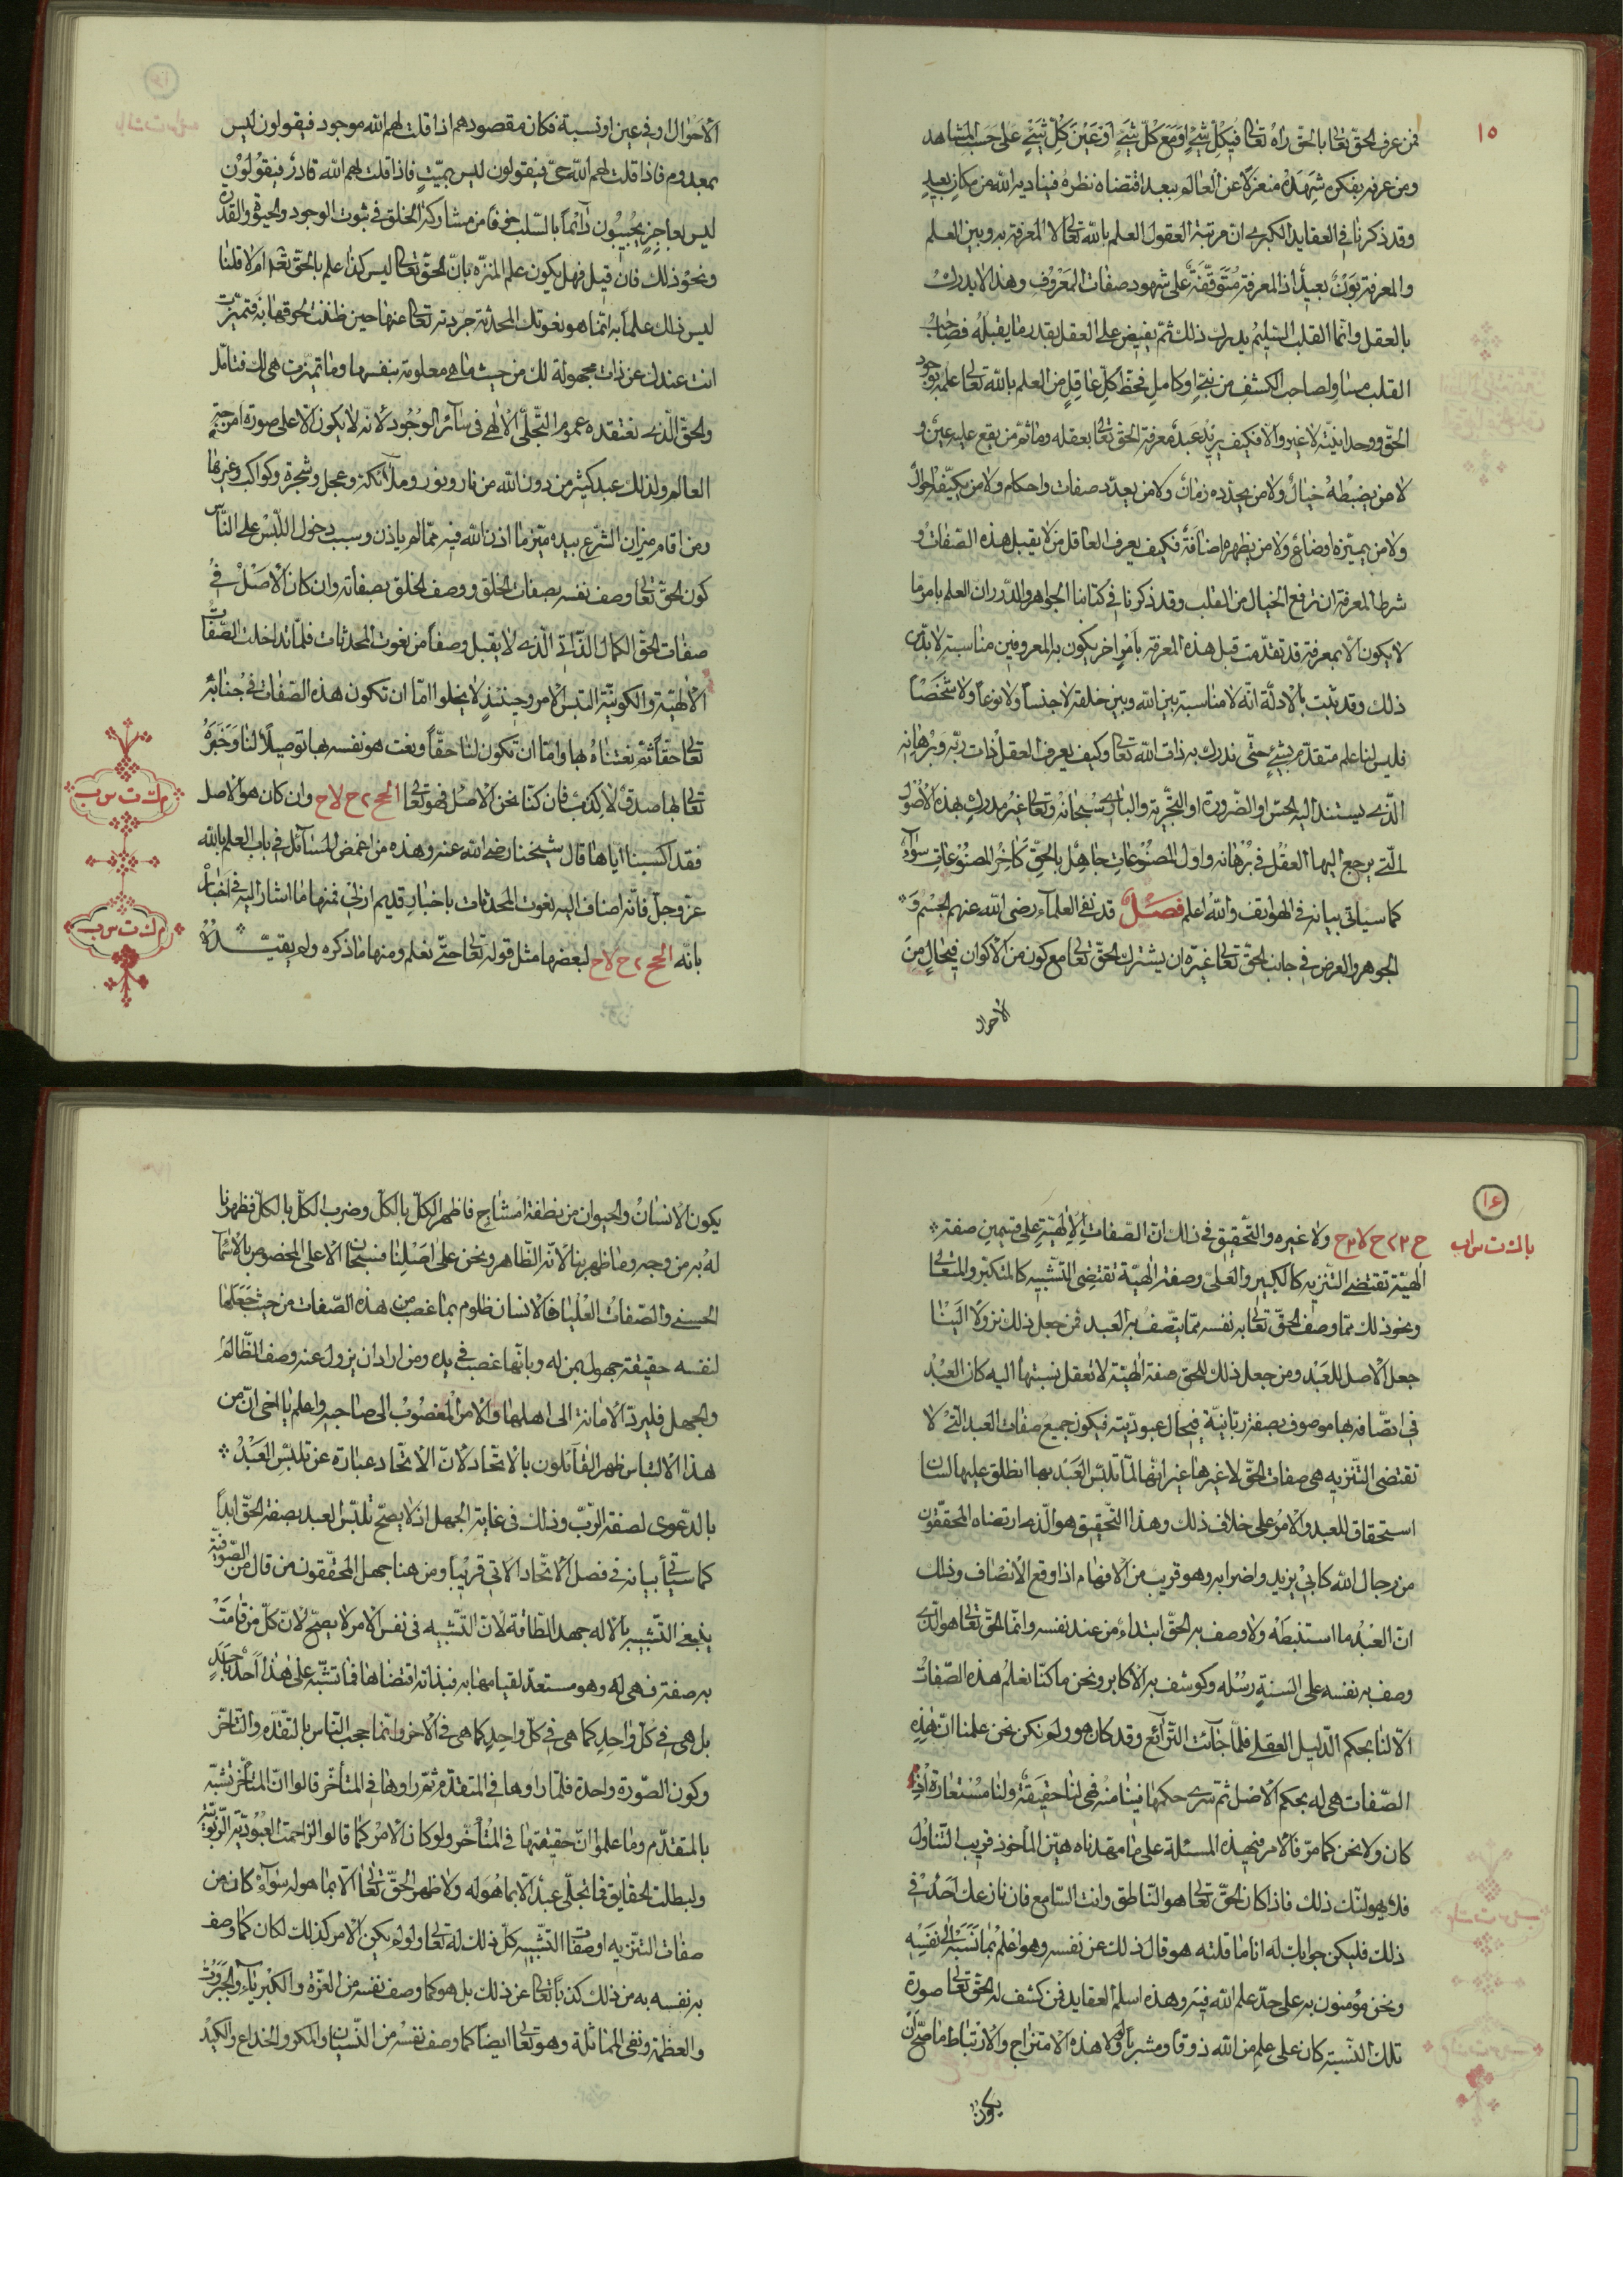 ١٥
فمن عرف الحقّ تعالى بالحقّ رآه تعالى في كلّ شيءٍ او مع كلّ شيءٍ او عين كلّ شيءٍ على حسب المشاهد
ومن عرفه بفكره شهده منعزلاً عن العالم ببعد اقتضاه نظره فيناديه الله من مكانٍ بعيدٍ
وقد ذكرنا في العقايد الكبرى ان مرتبة العقول العلم بالله تعالى لا المعرفة به وبين العلم
والمعرفة بَوْنٌ بعيدٌ اذ المعرفة متوقّفة على شهود صفات المعروف وهذا لا يدرك
بالعقل وانّما القلب السّليم يدرك ذلك ثمّ يفيض على العقل بقدر ما يقبله فصاحب
القلب مساوٍ لصاحب الكشف من نبيّ او كامل فحظّ كلّ عاقلٍ من العلم بالله تعالى علمه بوجود
الحقّ ووحدانيّته لا غير والّا فكيف يريد عبدٌ معرفة الحقّ تعالى بعقله وما ثمّ من يقع عليه عينٌ و
لا من يضبطه خيالٌ ولا من يحدّده زمانٌ ولا من يعدّد صفات واحكام ولا من يكيّفه احوالٌ
ولا من يميّزه اوضاعٌ ولا من يظهره اضافةٌ فكيف يعرف العاقل من لا يقبل هذه الصّفات و
شرط المعرفة ان ترفع الخيال من القلب وقد ذكرنا في كتابنا الجواهر والدّرر ان العلم بامرٍ ما
لا يكون الّا بمعرفة قد تقدّمت قبل هذه المعرفة بامرٍ اخر يكون به المعروفين مناسبة لا بدّ من
ذلك وقد ثبت بالادلّة انّه لا مناسبة بين الله وبين خلقه لا جنساً ولا نوعاً ولا شخصاً
فليس لنا علم متقدّم بشيءٍ حتّى ندرك به ذات الله تعالى وكيف يعرف العقل ذات ربّه وبرهانه
الّذى يستند اليه الحسّ او الضّرورة او التّجربة والبارى سبحانه وتعالى غير مدركٍ بهذه الاصول
الّتى يرجع اليها العقل في برهانه واول المصنوعات جاهل بالحقّ كآخر المصنوعات سوآءٌ
كما سيأتى بيانه في الهواتف والله اعلم فصـل قد نفى العلمآء رضى الله عنهم الجسم و
الجوهر والعرض في جانب الحقّ تعالى غيرة ان يشترك الحقّ تعالى مع كون من الاكوان في حال من
الاحوال
الاحوال او في عين او نسبة فكان مقصودهم اذا قلت لهم الله موجود فيقولون ليس
بمعدوم فاذا قلت لهم الله حىّ فيقولون ليس بميّتٍ فاذا قلت لهم الله قادرٌ فيقولون
ليس بعاجزٍ يجيبون دآئماً بالسّلب خوفاً من مشاركة الخلق في ثبوت الوجود والحيوة والقدرة
ونحو ذلك فان قيل فهل يكون علم المنزّه بانّ الحقّ تعالى ليس كذا علم بالحقّ تعالى ام لا قلنا
ليس ذلك علماً به انّما هو نعوتك المحدثة جردته تعالى عنها حين ظننت لحوقها به فتميّزت
انت عندك عن ذات مجهولة لك من حيث ما هى معلومة بنفسها وما تميّزت هى لك فتأمّل
والحقّ الّذى نعتقده عموم التّجلّى الالهى فى سآئر الوجود لانه لا يكون الّا على صورة امر جهة
العالم ولذلك عبد كثير من دون الله من نار ونور وملآئكة وعجل وشجرة وكواكب وغيرها
ومن اقام ميزان الشّرع بيده ميّز ما اذن الله فيه ممّا لم ياذن وسبب دخول اللّبس على النّاس
كون الحقّ تعالى وصف نفسه بصفات الخلق ووصف الخلق بصفاته وان كان الاصل في
صفات الحقّ الكمال الذّاتى الّذى لا يقبل وصفاً من نعوت المحدثات فلمّا تداخلت الصّفات
الالهيّة والكونيّة التبس الامر وحينئذٍ لا يخلوا امّا ان تكون هذه الصّفات في جنابه
تعالى حقّاً ثم نعتناه بها وامّا ان تكون لنا حقّاً ونعت هو نفسه بها توصيلاً لنا وخبره
تعالى بها صدق لا كذب فان كنّا نحن الاصل فهو تعالى الحح ٢ ح لاح وان كان هو الاصل
فقد اكسبنا اياها قال شيخنا رضى الله عنه وهذه من اغمض المسآئل في باب العلم بالله
عزّ وجلّ فانّه اضاف اليه نعوت المحدثات باخبار قديم ازلىّ فمنها ما اشار اليه في اخباره
بانّه الحح ٢ ح لاح لبعضها مثل قوله تعالى حتّى نعلم ومنها ما ذكره ولم يقيّده
١٦
ح ٢٣ ح لا٣ح ولا غيره والتّحقيق في ذلك انّ الصّفات الالهيّة على قسمين صفة
الهيّة تقتضى التّنزيه كالكبير والعلىّ وصفة الهيّة تقتضى التّشبيه كالمتكبّر والمتعالى
ونحو ذلك ممّا وصف الحقّ تعالى به نفسه ممّا يتّصف به العبد فمن جعل ذلك نزولاً الينا
جعل الاصل للعبد ومن جعل ذلك للحق صفة الهيّة لا تعقل نسبتها اليه كان العبد
في اتصافه بها موصوف بصفة ربّانيّة في حال عبوديّته فيكون جميع صفات العبد الّتى لا
تقتضى التّنزيه هى صفات الحقّ لا غيرها غير انّها لمّا تلبّس العبد بها انطلق عليها لسان
استحقاق للعبد والامر على خلاف ذلك وهذا التّحقيق هو الّذى ارتضاه المحقّقون
من رجال الله كابى يزيد واضرابه وهو قريب من الافهام اذا وقع الانصاف وذلك
انّ العبد ما استنبطه ولا وصف به الحقّ ابتداء من عند نفسه وانّما الحقّ تعالى هو الّذى
وصف به نفسه على السنة رسله وكوشف به الاكابر ونحن ما كنّا نعلم هذه الصّفات
الّا لنا بحكم الدّليل العقلى فلمّا جآئت الشّرآئع وقد كان هو ولم نكن نحن علمنا انّ هذه
الصّفات هى له بحكم الاصل ثمّ سرى حكمها فينا منه فهى لنا حقيقة ولنا مستعارة اذ
كان ولا نحن كما مرّ فالامر في هذه المسئلة على ما مهّدناه هيّن المأخوذ قريب التّناول
فلا يهولنّك ذلك فاذا كان الحقّ تعالى هو النّاطق وانت السّامع فان نازعك احدٌ في
ذلك فليكن جوابك له انا ما قلته هو قال ذلك عن نفسه وهو اعلم بما نسبه الى نفسه
ونحن مؤمنون به على حدّ علم الله فيه وهذه اسلم العقايد فمن كشف له الحقّ تعالى صورة
تلك النّسبة كان على علم من الله ذوقاً ومشرباً ولولا هذه الامتزاج والارتباط ما صحّ ان
يكون
يكون الانسان والحيوان من نطفة امشاج فاظهر الكلّ بالكلّ وضرب الكلّ بالكلّ فظهرنا
له به من وجه وما ظهر بنا لانّه الظّاهر ونحن على اصلنا فسبحان الاعلى المخصوص بالاسمآء
الحسنى والصّفات العليا فالانسان ظلوم بما غصب من هذه الصّفات من حيث جعلها
لنفسه حقيقة جهول بمن له وبانّها غصب في يده ومن اراد ان يزول عنه وصف الظّالم
والجهل فليردّ الامانة الى اهلها والامر المغصوب الى صاحبه واعلم يا اخى انّ من
هذا الالتباس ظهر القآئلون بالاتّحاد لانّ الاتّحاد عبارة عن تلبّس العبد
بالدّعوى لصفة الرّبّ وذلك فى غاية الجهل اذ لا يصحّ تلبّس العبد بصفة الحقّ ابداً
كما سيأتى بيانه في فصل الاتّحاد الآتى قريباً ومن هنا جهل المحقّقون من قال من الصّوفيّة
ينبغى التّشبيه بالاله جهد الطّاقة لانّ التّشبيه فى نفس الامر لا يصحّ لانّ كلّ من قامت
به صفة فهى له وهو مستعدّ لقيامها به فبذاته اقتضاها فما تشبّه على هذا احدٌ باحدٍ
بل هى في كلّ واحدٍ كما هى في كلّ واحدٍ كما هى في الاخر وانّما حجب النّاس بالتّقدّم والتّأخّر
وكون الصّورة واحدة فلمّا راوها في المتقدّم ثمّ راوها في المتأخّر قالوا انّ المتأخّر تشبّه
بالمتقدّم وما علموا انّ حقيقتها في المتأخّر ولو كان الامر كما قالوا لزاحمت العبوديّة الرّبوبيّة
ولبطلت الحقايق فما تجلّى عبدٌ الّا بما هو له ولا ظهر الحقّ تعالى الّا بما هو له سوآءٌ كان من
صفات التّنزيه او صفات التّشبيه كلّ ذلك له تعالى ولو لم يكن الامر كذلك لكان كما وصف
به نفسه به من ذلك كذباً تعالى عن ذلك بل هو كما وصف نفسه من العزّة والكبريآء والجبروت
والعظمة ونفى المماثلة وهو تعالى ايضاً كما وصف نفسه من النّسيان والمكر والخداع والكيد